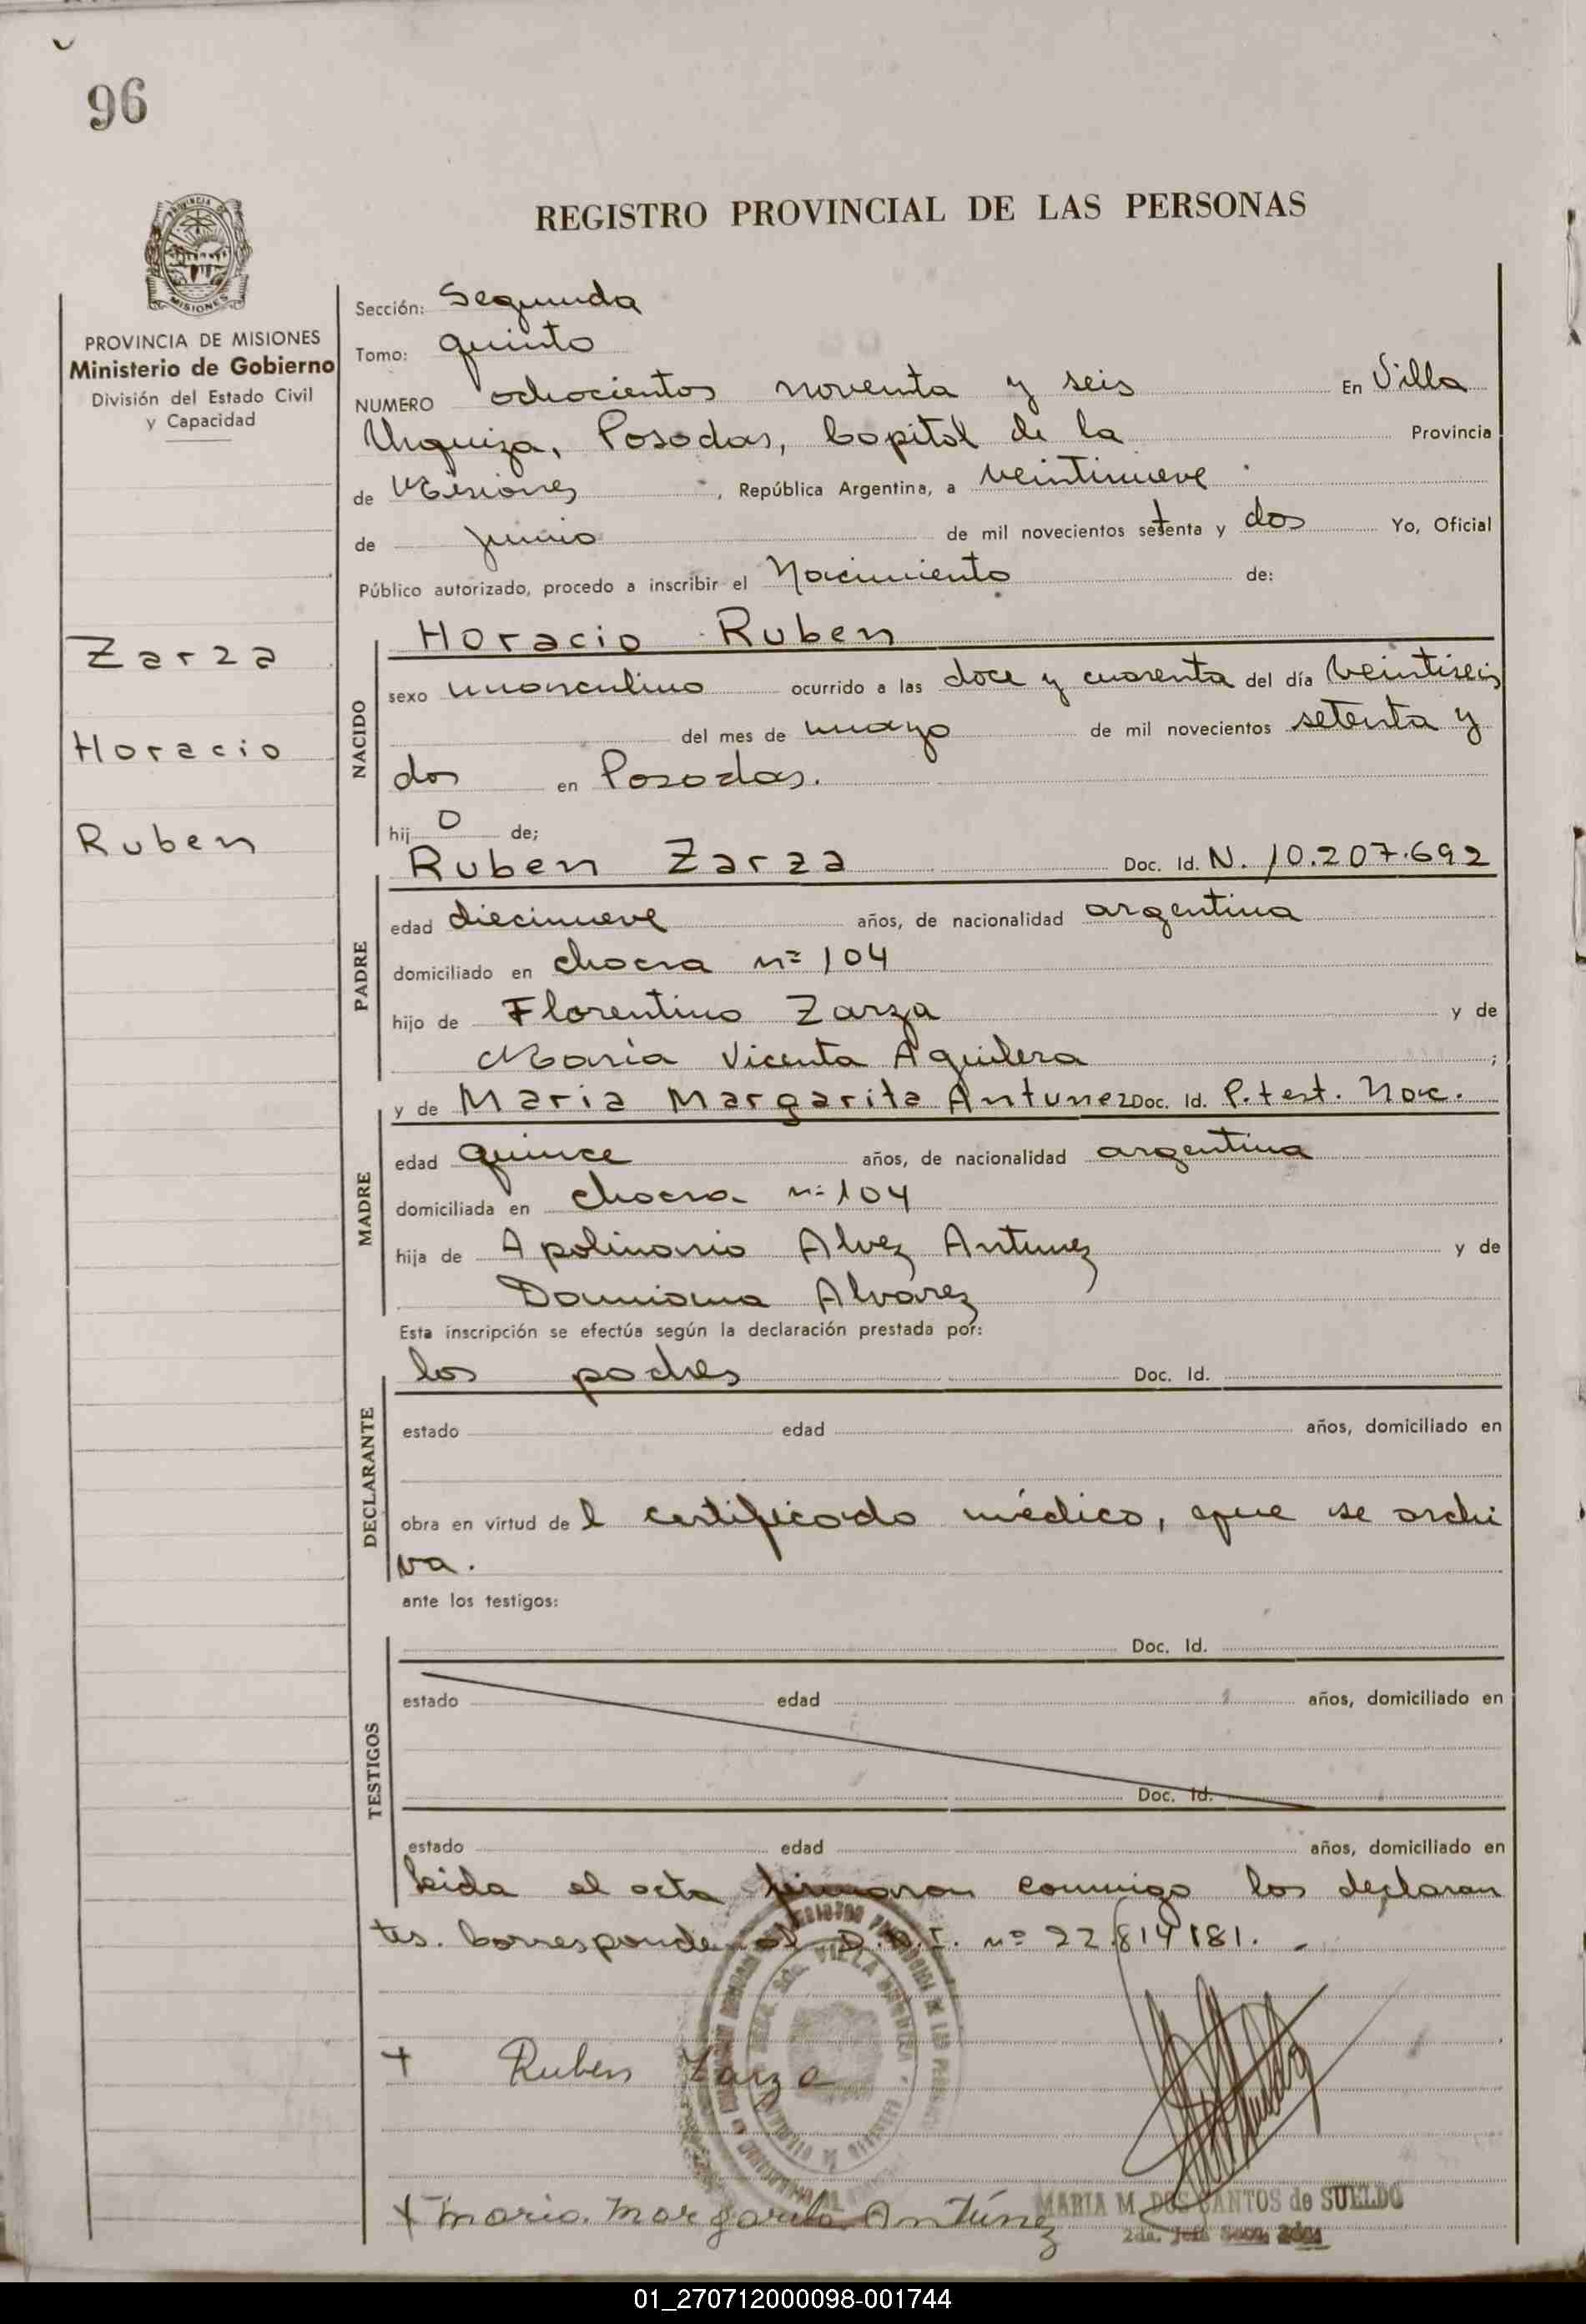 96
REGISTRO PROVINCIAL DE LAS PERSONAS
MISIONES
PROVINCIA DE MISIONES
Ministerio de Gobierno
División del Estado Civil
y Capacidad
Zarza
Horacio
Ruben
Sección: Segunda
Tomo: quinto
NUMERO ochocientos noventa y seis En Villa
Urquiza, Posadas, Capital de la Provincia
de Misiones, República Argentina, a veintinueve
de junio de mil novecientos setenta y dos Yo, Oficial
Público autorizado, procedo a inscribir el Nacimiento de:
Horacio Ruben
NACIDO
sexo masculino ocurrido a las doce y cuarenta del día veintiseis
del mes de mayo de mil novecientos setenta y
dos en Posadas.
hijo de;
Ruben Zarza Doc. Id. N. 10.207.692
PADRE
edad diecinueve años, de nacionalidad argentina
domiciliado en chacra nº 104
hijo de Florentino Zarza y de
María Vicenta Aguilera;
y de Maria Margarita Antunez Doc. Id. P. test. Nac.
MADRE
edad quince años, de nacionalidad argentina
domiciliada en chacra nº 104
hija de Apolinario Alvez Antunez y de
Damiana Alvarez
Esta inscripción se efectúa según la declaración prestada por:
los padres Doc. Id.
DECLARANTE
estado edad años, domiciliado en
obra en virtud del certificado médico, que se archi
va.
ante los testigos:
Doc. Id.
TESTIGOS
estado edad años, domiciliado en
Doc. Id.
estado edad años, domiciliado en
Leida el acta firmaron conmigo los declaran
tes. Corresponde al D.N.I. nº 22.814181.
+ Ruben Zarza
+ Maria Margarita Antúnez
MARIA M. DOS SANTOS de SUELDO
2da. Jefa Secc. 2da
01_270712000098-001744